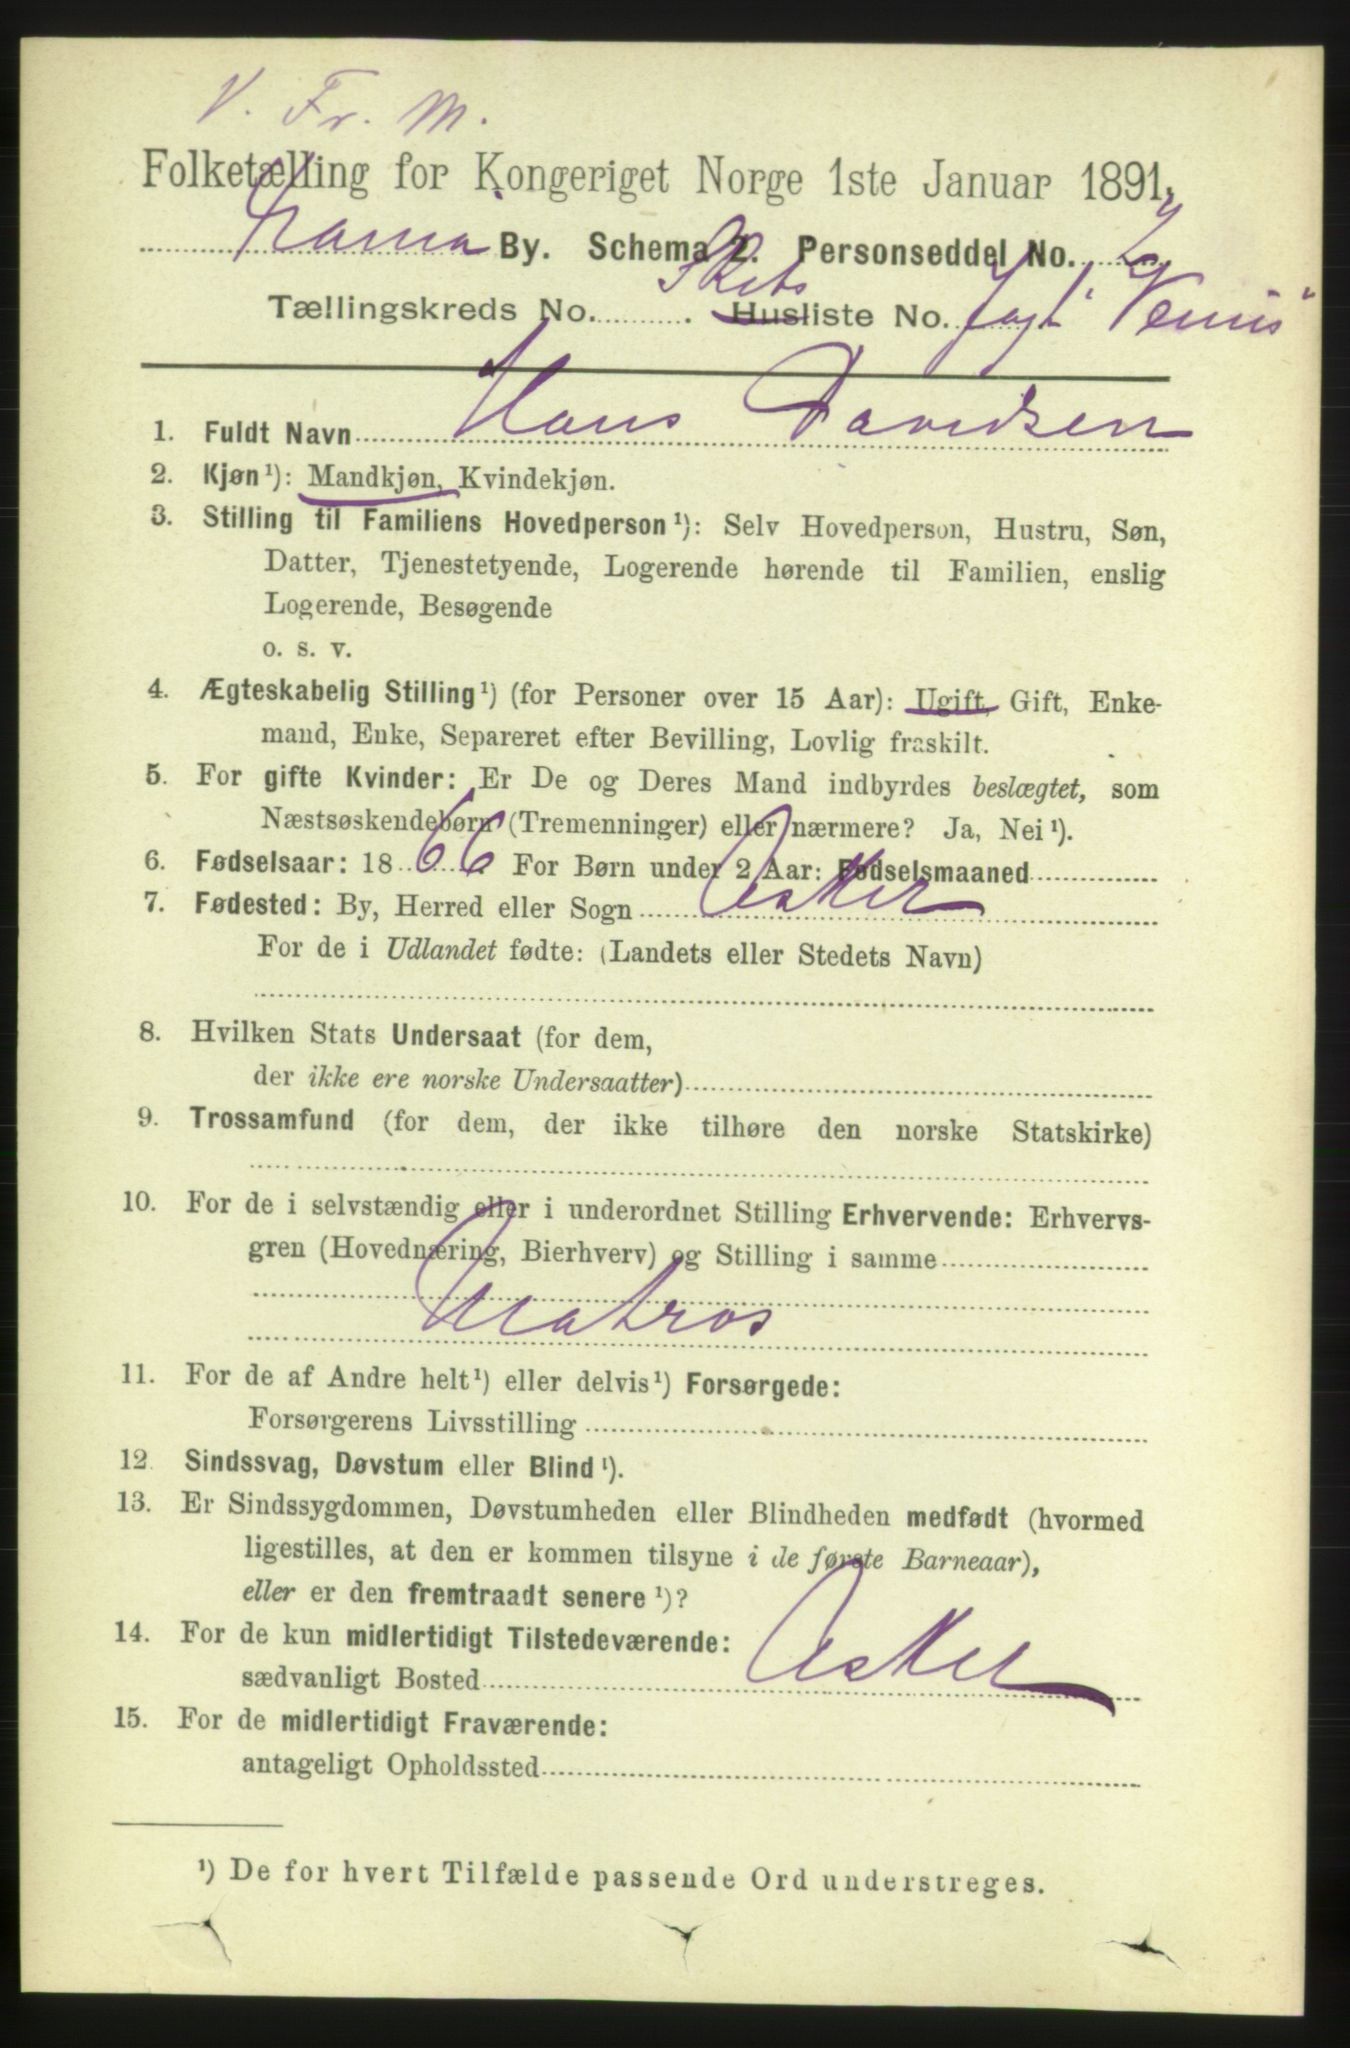 V. Fr. M.
Folketælling for Kongeriget Norge 1ste Januar 1891.
By. Schema 2. Personseddel No. 2
Skibs
Tællingskreds No. . Husliste No. Jagt "Venus"
1. Fuldt Navn Hans Davidsen
2. Kjøn¹): Mandkjøn, Kvindekjøn.
3. Stilling til Familiens Hovedperson¹): Selv Hovedperson, Hustru, Søn,
Datter, Tjenestetyende, Logerende hørende til Familien, enslig
Logerende, Besøgende
o. s. v.
4. Ægteskabelig Stilling¹) (for Personer over 15 Aar): Ugift, Gift, Enke-
mand, Enke, Separeret efter Bevilling, Lovlig fraskilt.
5. For gifte Kvinder: Er De og Deres Mand indbyrdes beslægtet, som
Næstsøskendebørn (Tremenninger) eller nærmere? Ja, Nei¹).
6. Fødselsaar: 1866 For Børn under 2 Aar: Fødselsmaaned
7. Fødested: By, Herred eller Sogn Asker
For de i Udlandet fødte: (Landets eller Stedets Navn)
8. Hvilken Stats Undersaat (for dem,
der ikke ere norske Undersaatter)
9. Trossamfund (for dem, der ikke tilhøre den norske Statskirke)
10. For de i selvstændig eller i underordnet Stilling Erhvervende: Erhvervs-
gren (Hovednæring, Bierhverv) og Stilling i samme
Matros
11. For de af Andre helt¹) eller delvis¹) Forsørgede:
Forsørgerens Livsstilling
12. Sindssvag, Døvstum eller Blind¹).
13. Er Sindssygdommen, Døvstumheden eller Blindheden medfødt (hvormed
ligestilles, at den er kommen tilsyne i de første Barneaar),
eller er den fremtraadt senere¹)?
14. For de kun midlertidigt Tilstedeværende:
sædvanligt Bosted Asker
15. For de midlertidigt Fraværende:
antageligt Opholdssted
¹) De for hvert Tilfælde passende Ord understreges.